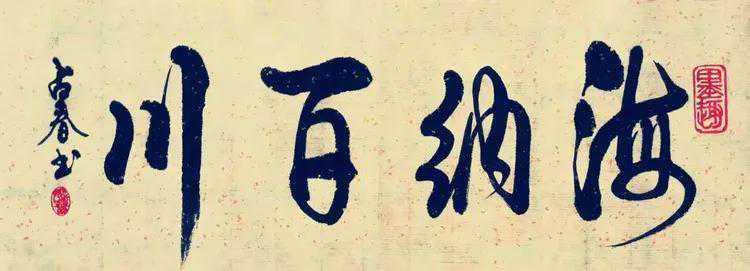 海纳百川
占春书
墨趣